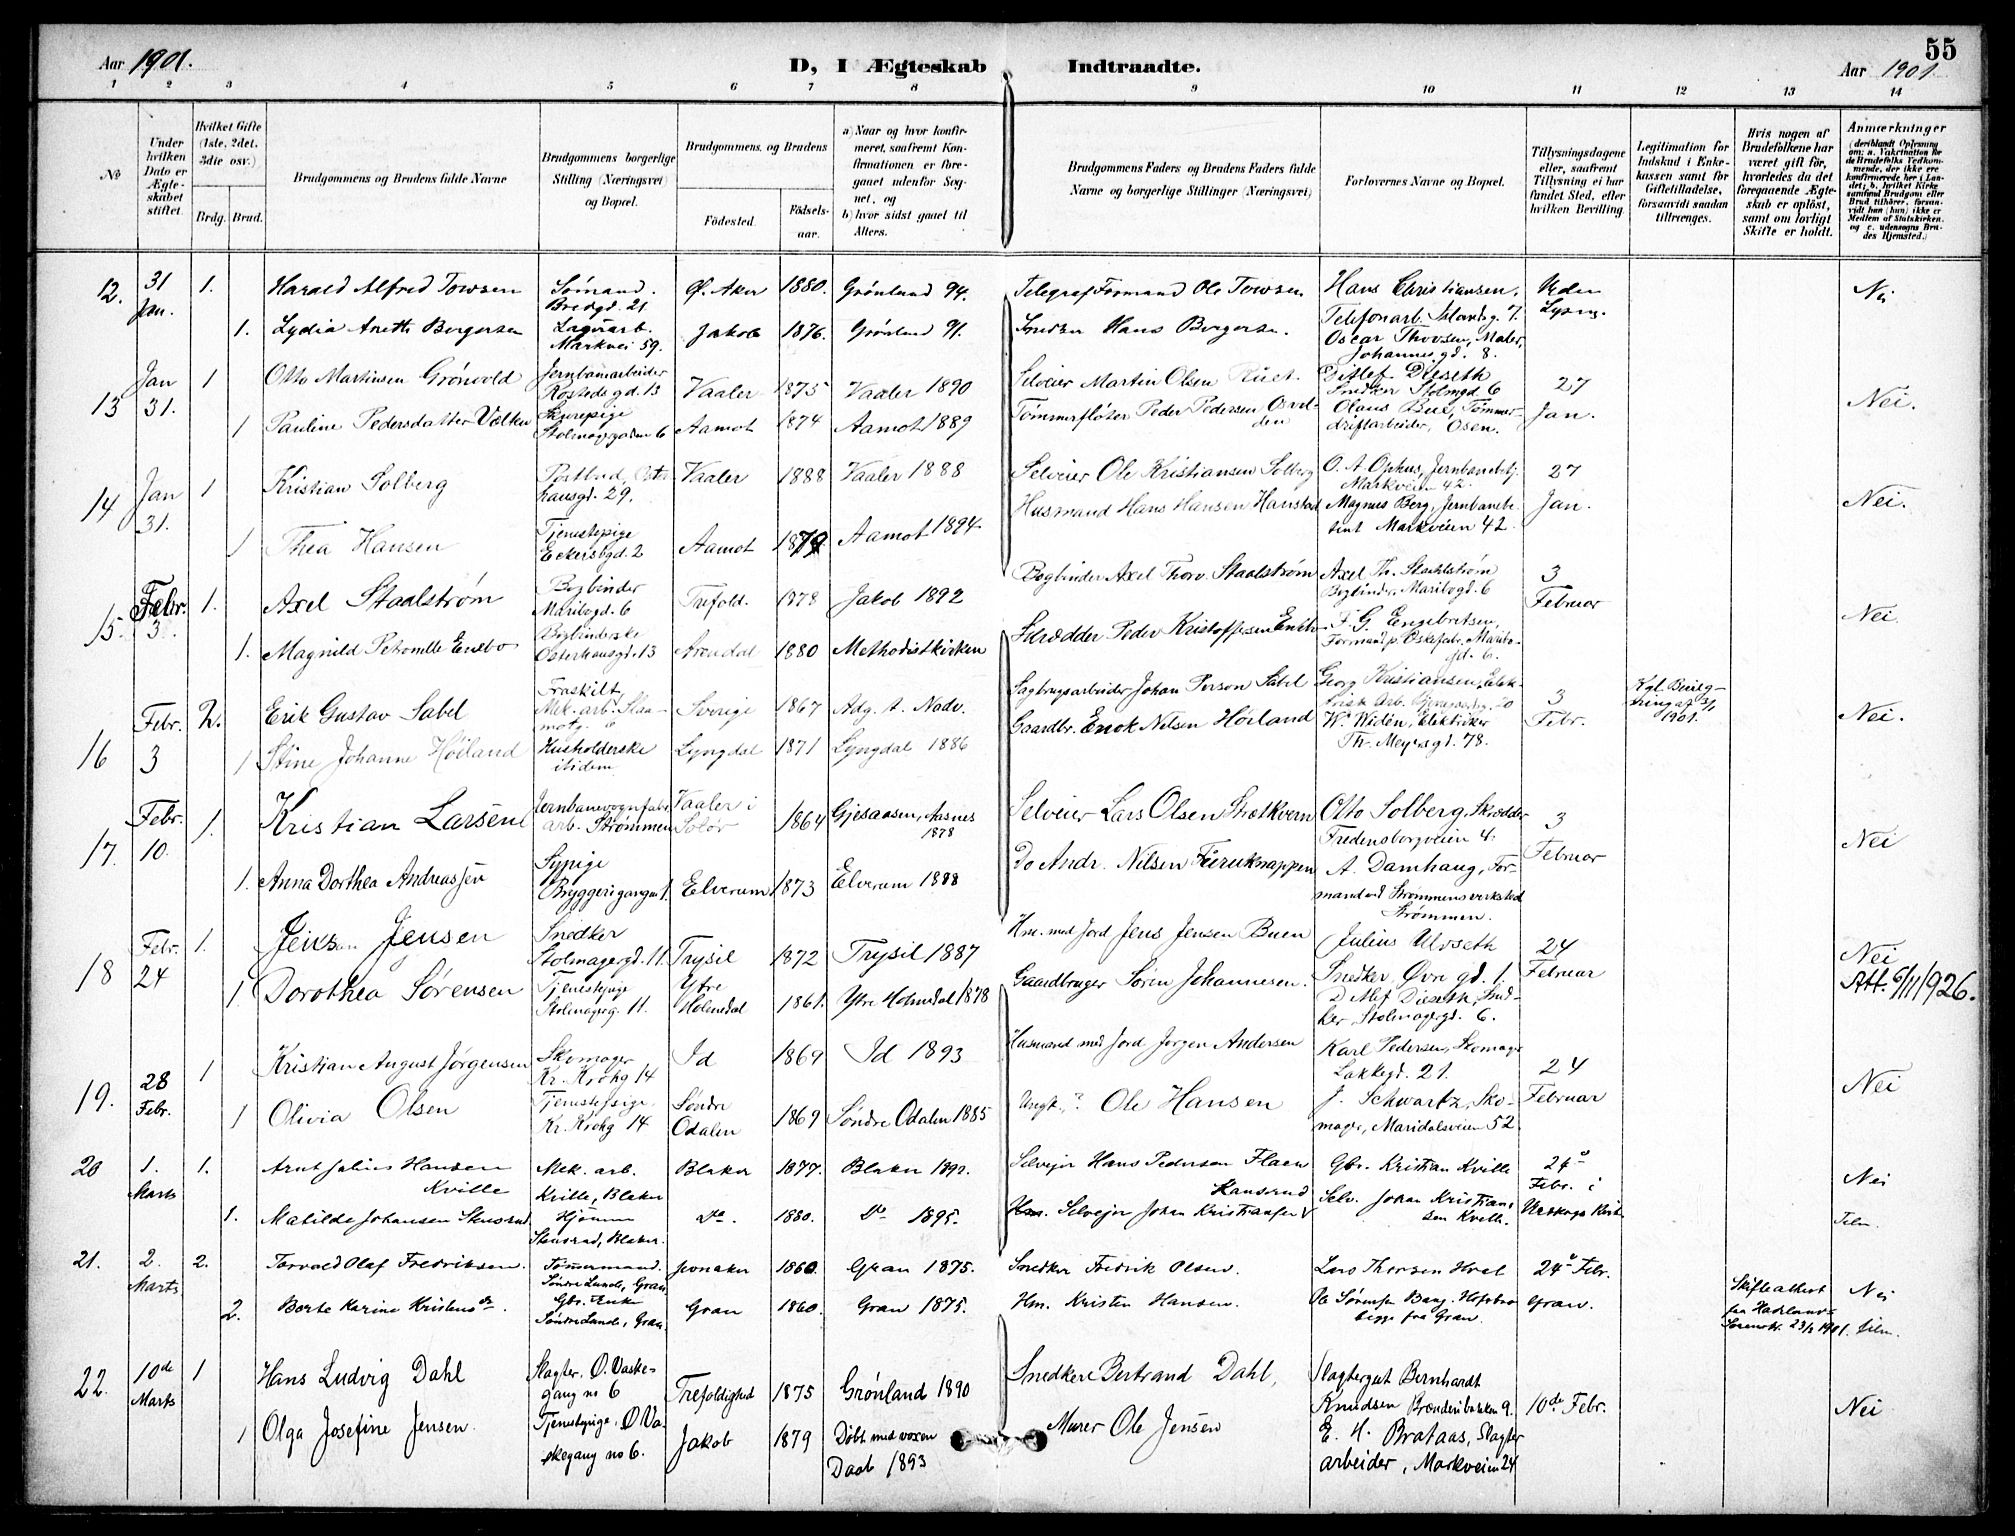 55
Aar 1901.
D, I Ægteskab Indtraadte.
Aar 1901.
1 2 3 4 5 6 7 8 9 10 11 12 13 14
No
Under hvilken Dato er Ægteskabet stiftet.
Hvilket Gifte (1ste, 2det, 3die osv.)
Brdg. Brud.
Brudgommens og Brudens fulde Navne
Brudgommens borgerlige Stilling (Næringsvei) og Bopæl.
Brudgommens og Brudens
Födested.
Födsels-aar.
a) Naar og hvor konfirmeret, saafremt Konfirmationen er foregaaet udenfor Sognet, og
b) hvor sidst gaaet til Alters.
Brudgommens Faders og Brudens Faders fulde Navne og borgerlige Stillinger (Næringsvei)
Forlovernes Navne og Bopæl.
Tillysningsdagene eller, saafremt Tillysning ei har fundet Sted, efter hvilken Bevilling.
Legitimation for Indskud i Enkekassen samt for Giftetilladelse, forsaavidt saadan tiltrænges.
Hvis nogen af Brudefolkene har været gift för, hvorledes da det foregaaende Ægteskab er oplöst, samt om lovligt Skifte er holdt.
Anmærkninger
12. 31 Jan. 1. Harald Alfred Towsen Sömand. Bredgd. 21 Ø. Aker 1880. Grønland 94. Telegraf Formand Ole Towsen Hans Christiansen, Telefonarb. 7. Uden Lysn. Nei
1. Lydia Anette Bergersen Markvei 59. Jakob 1876. Grønland 91. Snedker Hans Bergersen. Oscar Thorsen, Maler, Johannesgd. 8.
13 Jan 31. 1 Otto Martinsen Grönvold Jernbanearbeider Rostedsgd. 13 Vaaler 1875 Vaaler 1890 Selveier Martin Olsen Ditlef Dieseth Snedker Stolmgd 6 27 Jan. Nei.
1 Pauline Pedersdatter Stolmagergaden 6 Aamot 1874 Aamot 1889 Tømmerfløter Peder Pedersen Olaus Tømmerdriftarbeider, Osen.
14 Jan 31. 1 Kristian Solberg Postbud, Osterhausgd. 29. Vaaler 1888 Vaaler 1888 Selveier Ole Kristiansen Solberg O. A. Ophus, Jernbanebetj. Markveien 42. 27 Jan. Nei.
1 Thea Hansen Tjenestepige Eckersbgd. 2 Aamot 1879 Aamot 1894 Husmand Hans Hansen Hanstad Magnus Berg, Jernbanebetjent Markveien 42
15. Febr. 3. 1. Axel Staalstrøm Bogbinder Maribogd. 6 Trefold. 1878 Jakob 1892 Bogbinder Axel Thorv. Staalstrøm Axel Th. Staalstrøm Bogbinder, Maribogd. 6 3 Februar Nei.
1. Magnild Petronelle Enebo Bogbinderske Osterhausgd. 13 Arendal 1880 Methodistkirken Skrædder Peder Kristoffersen F. G. Engebretsen, Maribogd. 6.
16 Febr. 3 2. Erik Gustav Sabel Fraskilt, Mek. arb. Sverige 1867 Adg. t. Nadv. Sagbrugsarbeider Johan Person Sabel Georg Kristiansen, 3 Febr. Kgl. Bevilgning af 3/1 1901. Nei.
1 Stine Johanne Höiland Husholderske ibidem Lyngdal 1871 Lyngdal 1886 Gaardbr. Enok Nilsen Höiland W. Widén, Elektriker Th. Meyersgd. 78.
17. Febr. 10. 1. Kristian Larsen Jernbanevognfabr. arb. Strømmen Vaaler i Solør 1864 Gjesaasen, Aasnes 1878 Selveier Lars Olsen Otto Solberg, Skrædder Fredensborgveien 4. 3 Februar Nei
1. Anna Dorthea Andreassen Sypige Bryggerigangen 1. Elverum 1873 Elverum 1888 Do Andr. Nilsen Furuknappen A. Damhaug, Formand ved Strømmens verksted Strømmen.
18 Febr. 24 1. Jens Jensen Snedker Stolmagergd. 11. Trysil 1872 Trysil 1887 Hm. med Jord Jens Jensen Buen Julius Ulvseth Snedker Øvre gd. 1. 24 Februar Nei
1 Dorothea Sørensen Tjenestepige Stolmagerg. 11. Ytre Holmedal 1861. Ytre Holmedal 1878 Gaardbruger Sören Johannesen. Ditlef Dieseth, Snedker Stolmagergd. 6. Att. 6/11 1926.
19. 28 Febr. 1 Kristian August Jørgensen Skomager Kr. Krohg 14 Id 1869 Id 1893 Husmand med Jord Jørgen Andersen Karl Pedersen, Skomager Lakkegd. 21. 24 Februar Nei
1 Olivia Olsen Tjenestepige, Kr. Krohg 14 Söndre Odalen 1869 Söndre Odalen 1885 Ungk. ? Ole Hansen J. Schwartz, Skomager, Maridalsveien 52.
20 1. Marts 1. Arnt Julius Hansen Kville Mek. arb. Kville, Blaker Blaker 1877. Blaker 1892. Selvejer Hans Pedersen Flaen Gbr. Kristian Kville 24 Febr. i Urskogs Kirke Nei
1. Matilde Johansen Stensrud Hjemme Stensrud, Blaker. Do. 1880. Do 1895. Hm. Selvejer Johan Kristiansen Hansrud Selv. Johan Kristiansen Kville.
21. 2. Marts 2. Torvald Olaf Fredriksen. Tømmermand. Söndre Lunde, Gran Jevnaker 1860. Gran 1875. Snedker Fredrik Olsen. Lars Thorsen Hval 24 Febr. Skifteattest fra Hadeland 23/2 1901. Nei
2. Berte Karine Kristensdr. Gbr. Enke Söndre Lunde, Gran. Gran 1860. Gran 1875. Hm. Kristen Hansen. Ole Sörensen Bang, begge fra Gran. Gran.
22. 10de Marts 1 Hans Ludvig Dahl Slagter. Ø. Vaskegang no 6 Trefoldighed 1875 Grönland 1890 Snedker Bertrand Dahl, Slagtergut Bernhardt Knudsen Brenneribakken 9. 10de Febr. Nei
1 Olga Josefine Jensen Tjenestepige. Ø Vaskegang no 6. Jakob 1879 Döbt med voxen Daab 1893 Murer Ole Jensen E. H. Brataas, Slagterarbeider, Markveien 24